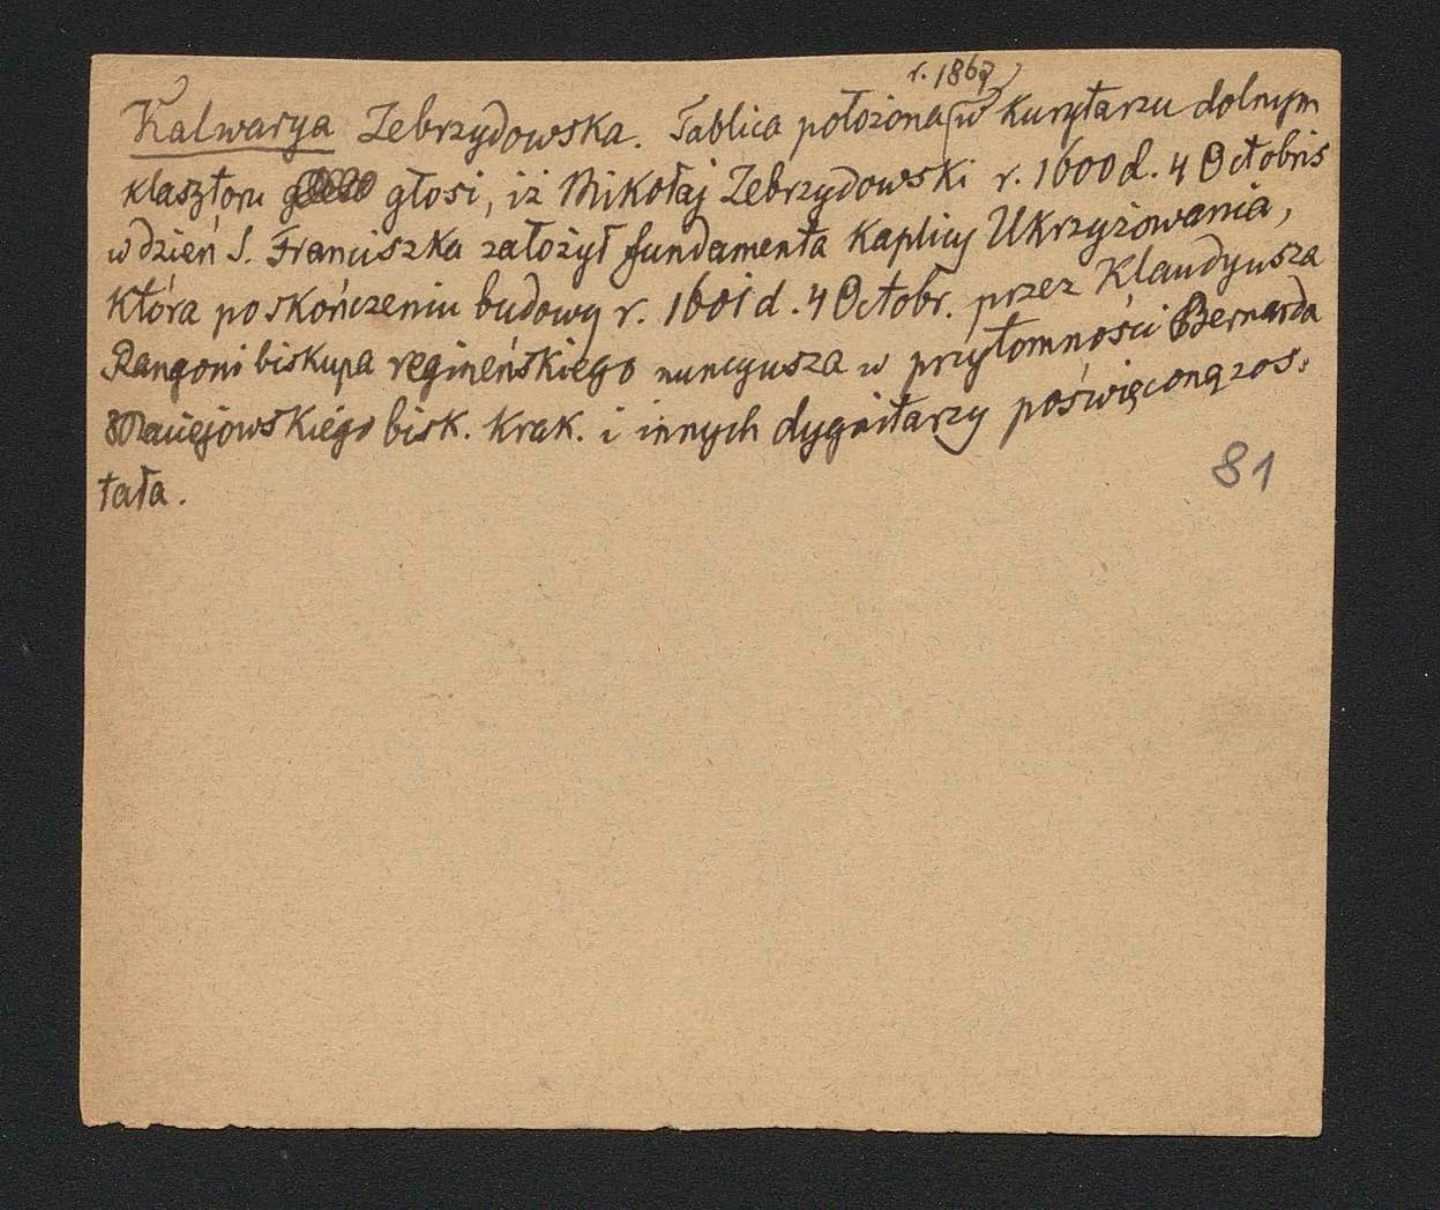 r. 1869
Kalwarya Zebrzydowska. Tablica położona w kurytarzu dolnym
klasztoru głosi, iż Mikołaj Zebrzydowski r. 1600 d. 4 Octobris
w dzień S. Franciszka założył fundamenta Kaplicy Ukrzyżowania,
która po skończeniu budowy r. 1601 d. 4 Octobr. przez Klaudyusza
Rangoni biskupa regineńskiego nuncyusza w przytomności Bernarda
Maciejowskiego bisk. krak. i innych dygnitarzy poświęconą zos-
tała.
81